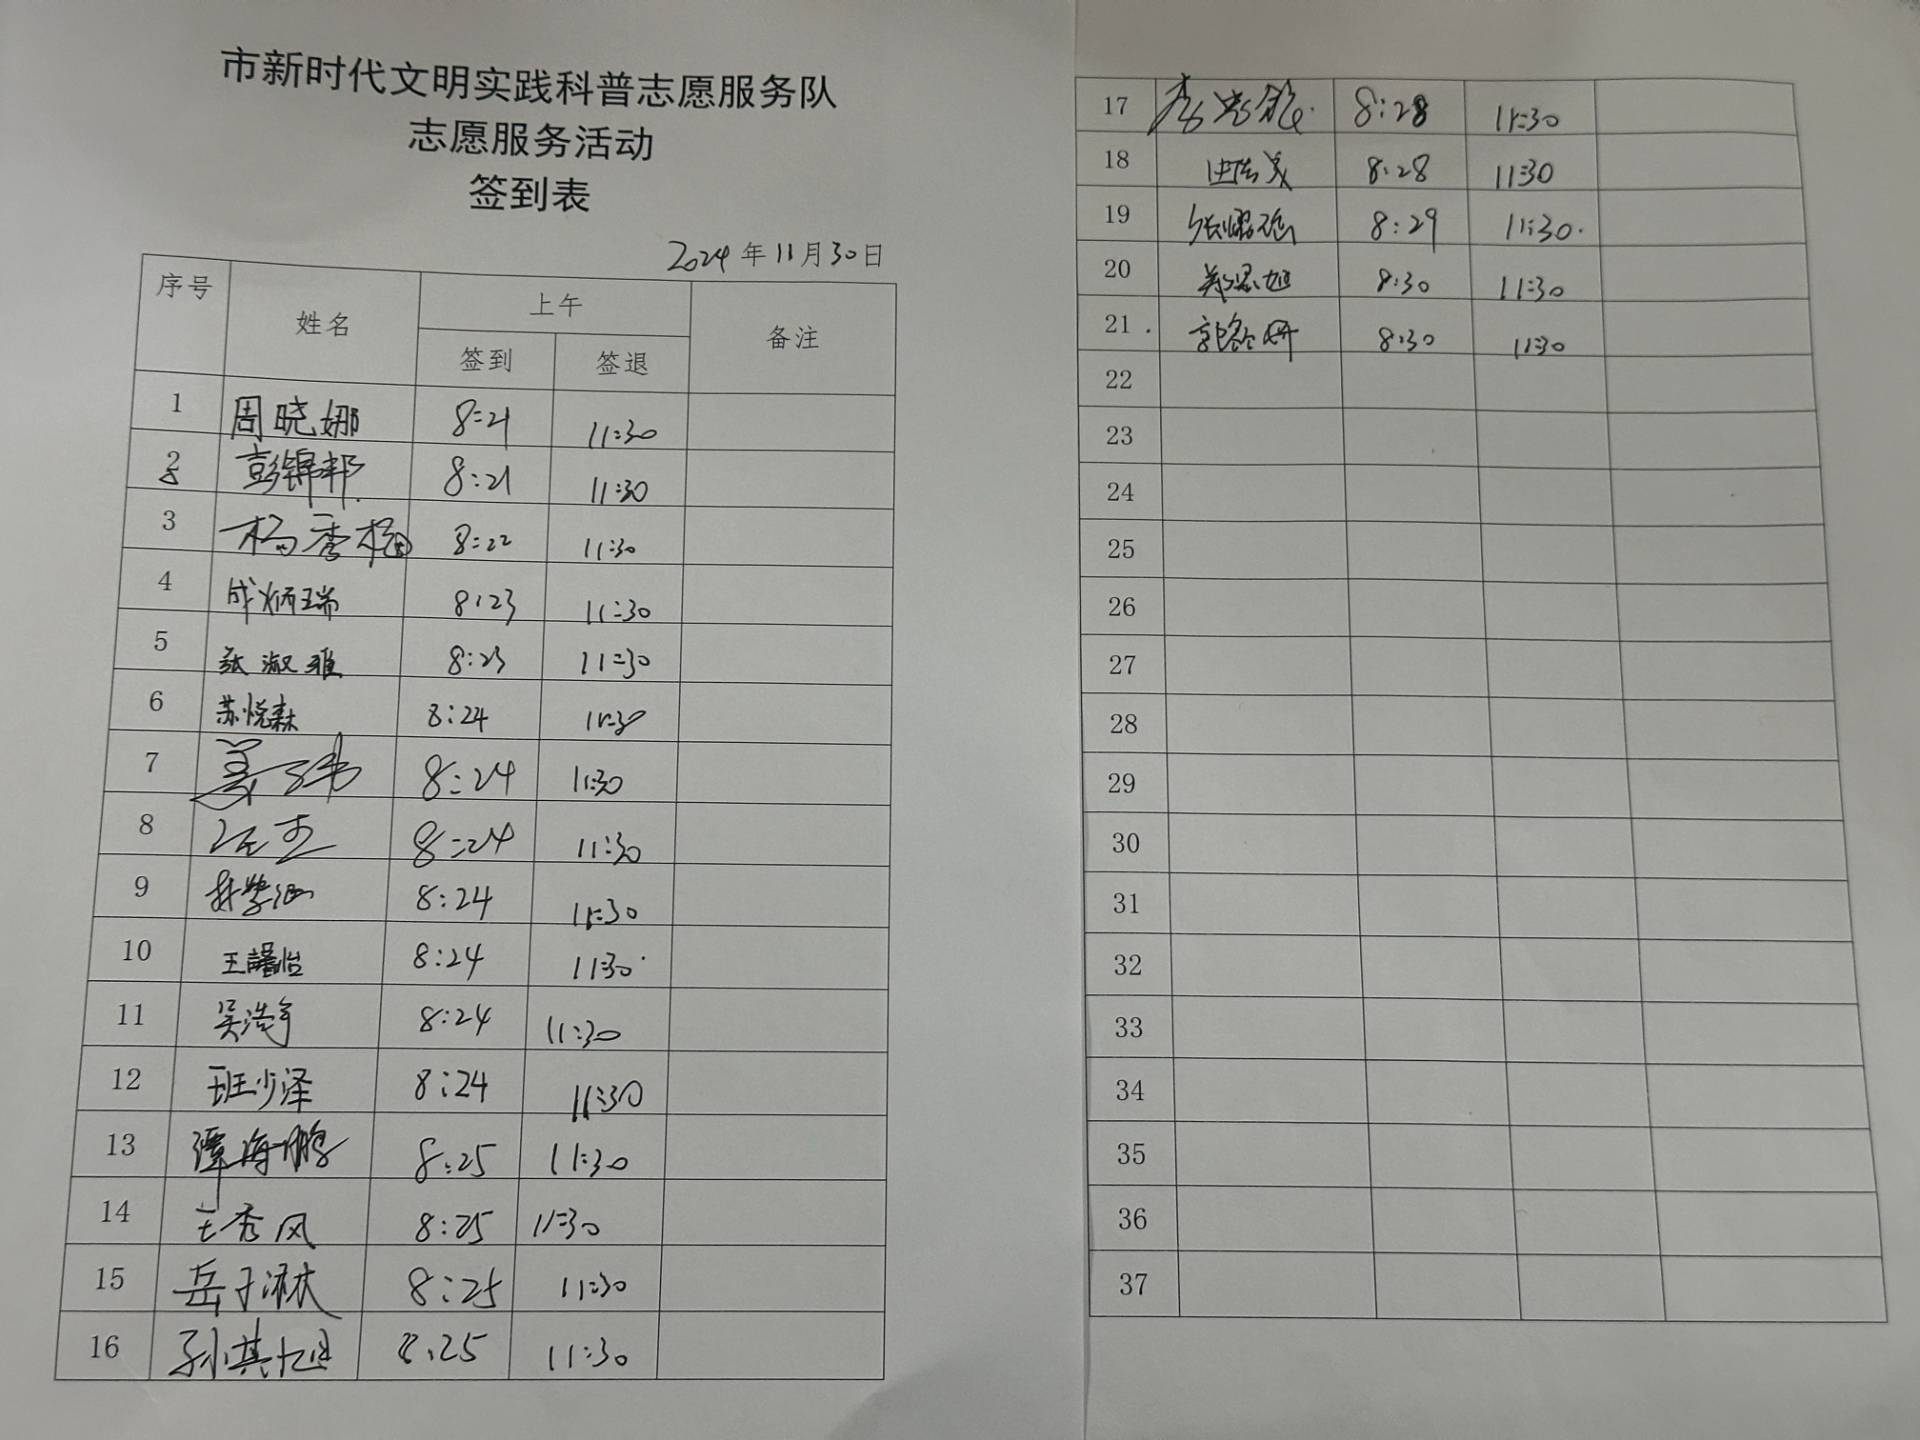 市新时代文明实践科普志愿服务队
志愿服务活动
签到表
2024年11月30日
序号 姓名 上午 备注
签到 签退
1 周晓娜 8:21 11:30
2 彭锦邦 8:21 11:30
3 杨秀梅 8:22 11:30
4 成炳瑞 8:23 11:30
5 张淑雅 8:23 11:30
6 苏悦森 8:24 11:30
7 姜 8:24 11:30
8 8:24 11:30
9 8:24 11:30
10 王馨怡 8:24 11:30
11 吴浩宇 8:24 11:30
12 班少泽 8:24 11:30
13 谭海鹏 8:25 11:30
14 王秀风 8:25 11:30
15 岳子淋 8:25 11:30
16 孙其旭 8:25 11:30
17 李 8:28 11:30
18 8:28 11:30
19 张耀 8:29 11:30
20 8:30 11:30
21 郭 8:30 11:30
22
23
24
25
26
27
28
29
30
31
32
33
34
35
36
37